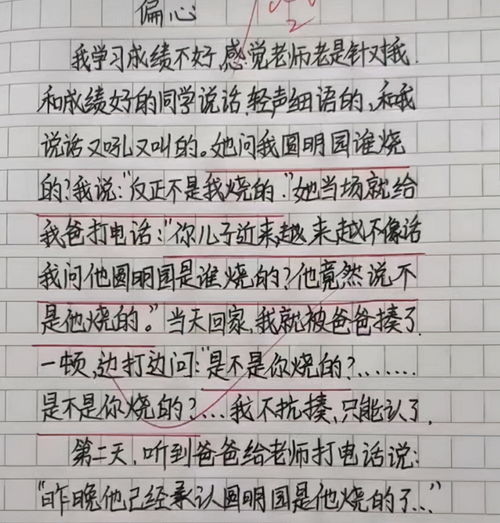 偏心
我学习成绩不好,感觉老师老是针对我.
和成绩好的同学说话,轻声细语的,和我
说话又吼又叫的。她问我圆明园谁烧
的?我说:"反正不是我烧的."她当场就给
我爸打电话:"你儿子近来,越来越不像话
我问他圆明园是谁烧的?他竟然说不
是他烧的。"当天回家,我就被爸爸揍了
一顿,边打边问:"是不是你烧的?.......
是不是你烧的?...我不抗揍,只能认了.
第二天,听到爸爸给老师打电话说:
"昨晚他已经承认圆明园是他烧的了..."